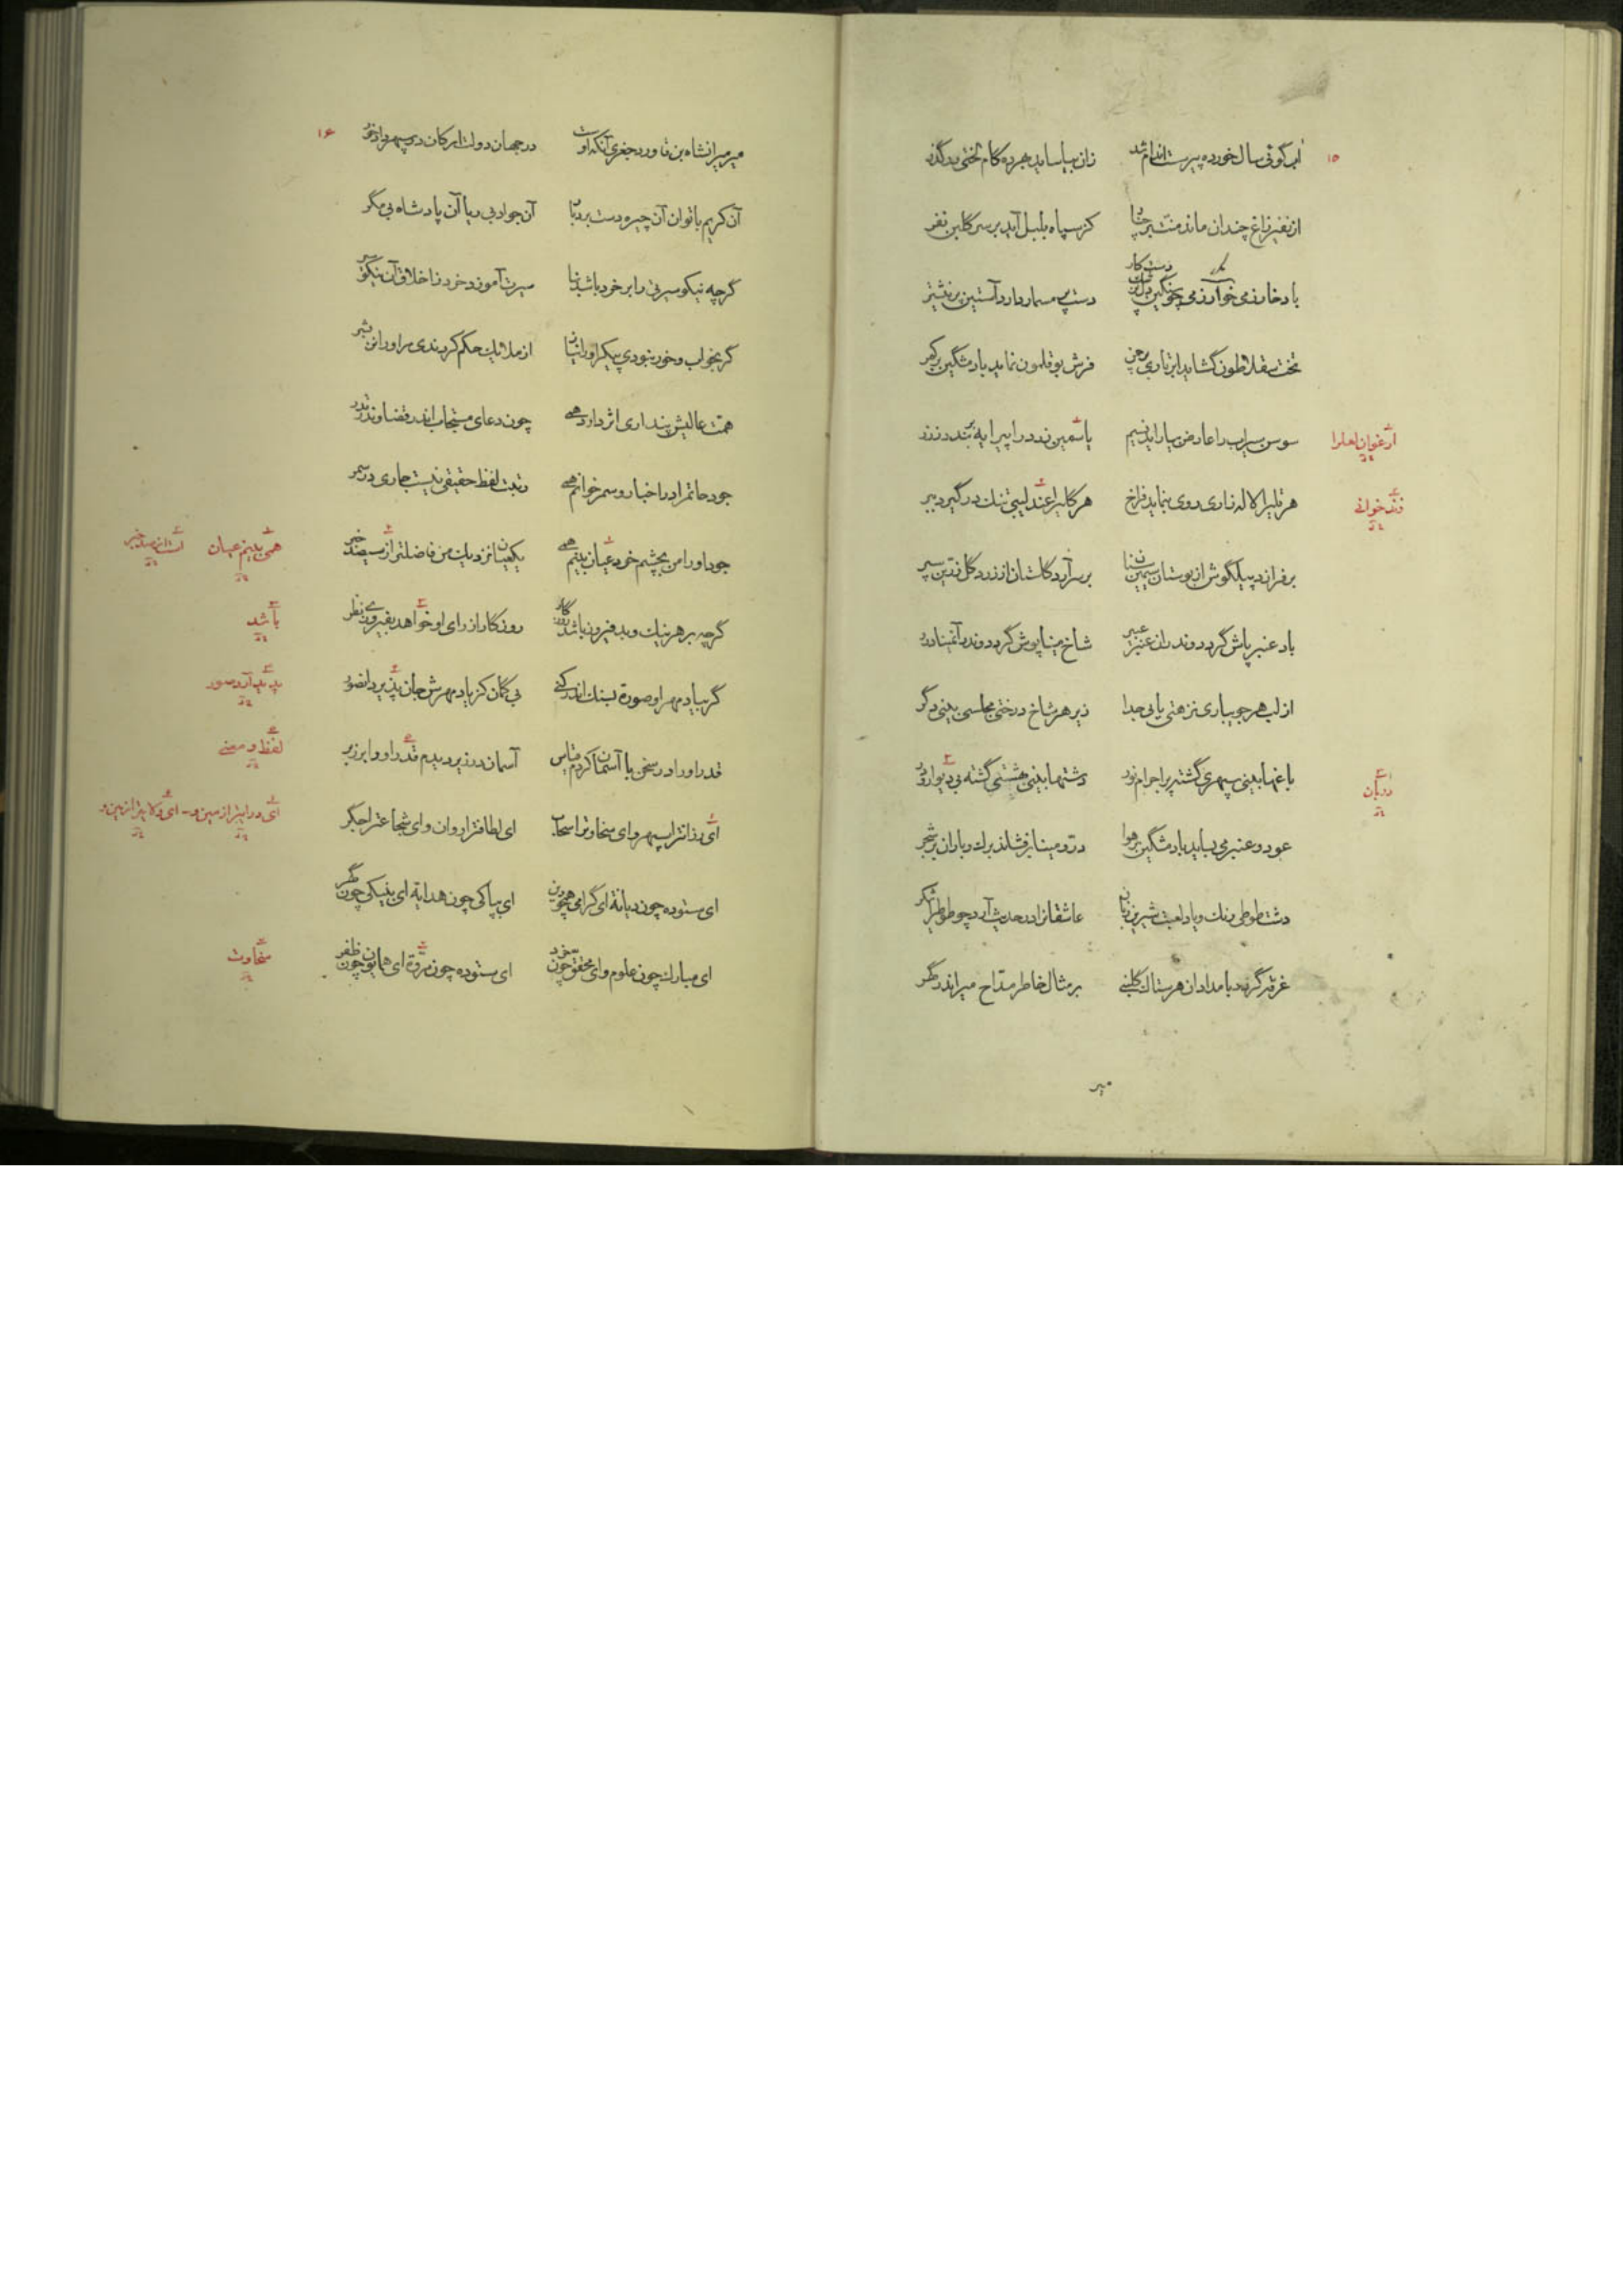 ۱۵
آب گوئی سال خورده پیر سست اندام شد زان بیاساید بهر ده گام لختی در گذر
از نفیر زاغ چندان ماند منت بر کز سپاه بلبل آید بر سر گلبن نفر
دست کار
باد خارزمی خوارزمی چو سنگین دل دست پر مسمار دارد آستین پر نیشتر
تخت سقلاطون گشاید ابر تاری بر چمن فرش بوقلمون نماید باد مشگین بر کمر
ارغوان لعل را
سوسن سیراب را عارض بیاراید نسیم یاسمین زرد را پیرایه بندد زر
زند خوانی
هر تلی را لاله زاری روی بنماید فراخ هر گلی را عندلیبی تنگ در گیرد ببر
بر فرازد پیلگوش از بوستان سیمین سنان بر سر آرد گلستان از زرد گل زرین سپر
باد عنبر پاش گردد وندران عنبر عبیر شاخ مینا پوش گردد وندر آن مینا درر
از لب هر جویباری نزهتی یابی جدا زیر هر شاخ درختی مجلسی بینی دگر
دربان
باغها بینی سپهری گشته پر اجرام نور دشتها بینی بهشتی گشته بی دیوار و در
عود و عنبر می بساید باد مشگین بر هوا در و مینا بر فشاند برگ و باران بر شجر
دشت طوطی رنگ و باد لعبت شیرین زبان عاشقانرا در حدیث آرد چو طوطی را شکر
غرقه گردد بامدادان هر ستاک گلبنی بر مثال خاطر مداح میر اندر گهر
میر
۱۶
میر میرانشاه بن قاورد جغری آنکه اوست در جهان دولت ارکان در سپهر داد خور
آن کریم با توان آن چیره دست بردبار آن جواد بی ریا آن پادشاه بی مگر
گرچه نیکو سیرتی را بر خرد باشد بنا سیرت آموزد خرد ز اخلاق آن نیکو سیر
گر بخواب و خور نبودی پیکر او را نیاز از ملایک حکم کردندی مر او را نز بشر
همت عالیش پنداری اثر دارد همی چون دعای مستجاب اندر قضا و در قدر
جود حاتم را در اخبار و سمر خوانم همی رتبت لفظ حقیقی نیست جاری در سمر
جود او را من بچشم خرد عیان بینم همی یک عیان نزدیک من فاضلتر از سیصد خبر
همی بینم عیان است از صد خبر
گرچه بر هر نیک و بد فیروز باشد روزگار روزگار از رای او خواهد بفیروزی نظر
باشد
گر بیاد مهر او صورة بسنگ اندر کنی بی گمان کز یاد مهرش جان پذیرد آن صور
پدید آرد صور
قدر او را در سخن با آسمان کردم قیاس آسمان در زیر دیدم قدر او را بر زبر
لفظ و معنی
ای رزانت را سپهر و ای سخاوت را سحاب ای لطافت را روان و ای شجاعت را جگر
ای ستوده چون دیانة ای گرامی همچو دین ای بپاکی چون هدایة ای بنیکی چون گهر
ای مبارک چون علوم و ای محقق چون خرد ای ستوده چون مروة ای همایون چون ظفر
سخاوت